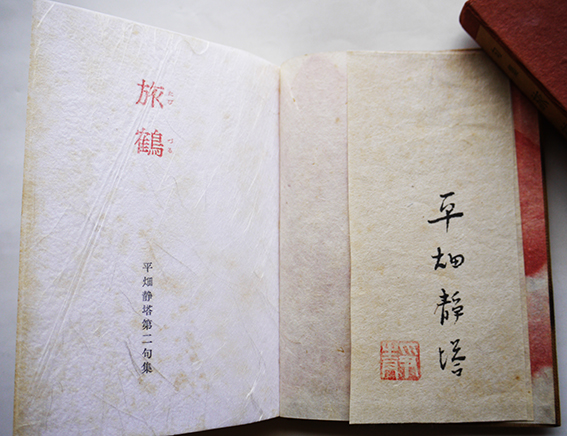 旅鶴
たび
づる
平畑静塔第二句集
平畑静塔